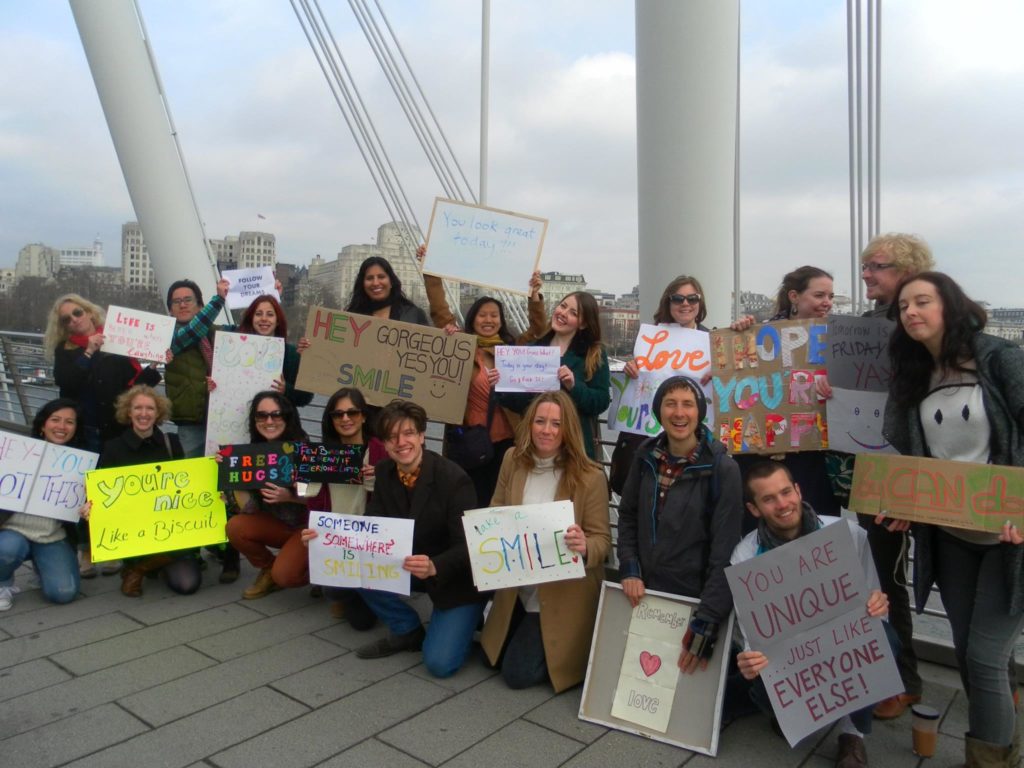 You look great
today !!!
FOLLOW
YOUR
DREAMS
LIFE IS
HEY GORGEOUS
YES YOU!
SMILE
HEY YOU
Today is your day
Love
YOURS
I HOPE
YOU'RE
HAPPY
FRIDAY
YAY
HEY-YOU
GOT THIS!
you're
nice
Like a Biscuit
FREE
HUGS
FEW BURDENS
ARE HEAVY IF
EVERYONE LIFTS
SOMEONE
SOMEWHERE
IS
SMILING
take a
SMILE
Remember
love
YOU ARE
UNIQUE
...JUST LIKE
EVERYONE
ELSE!
CAN do